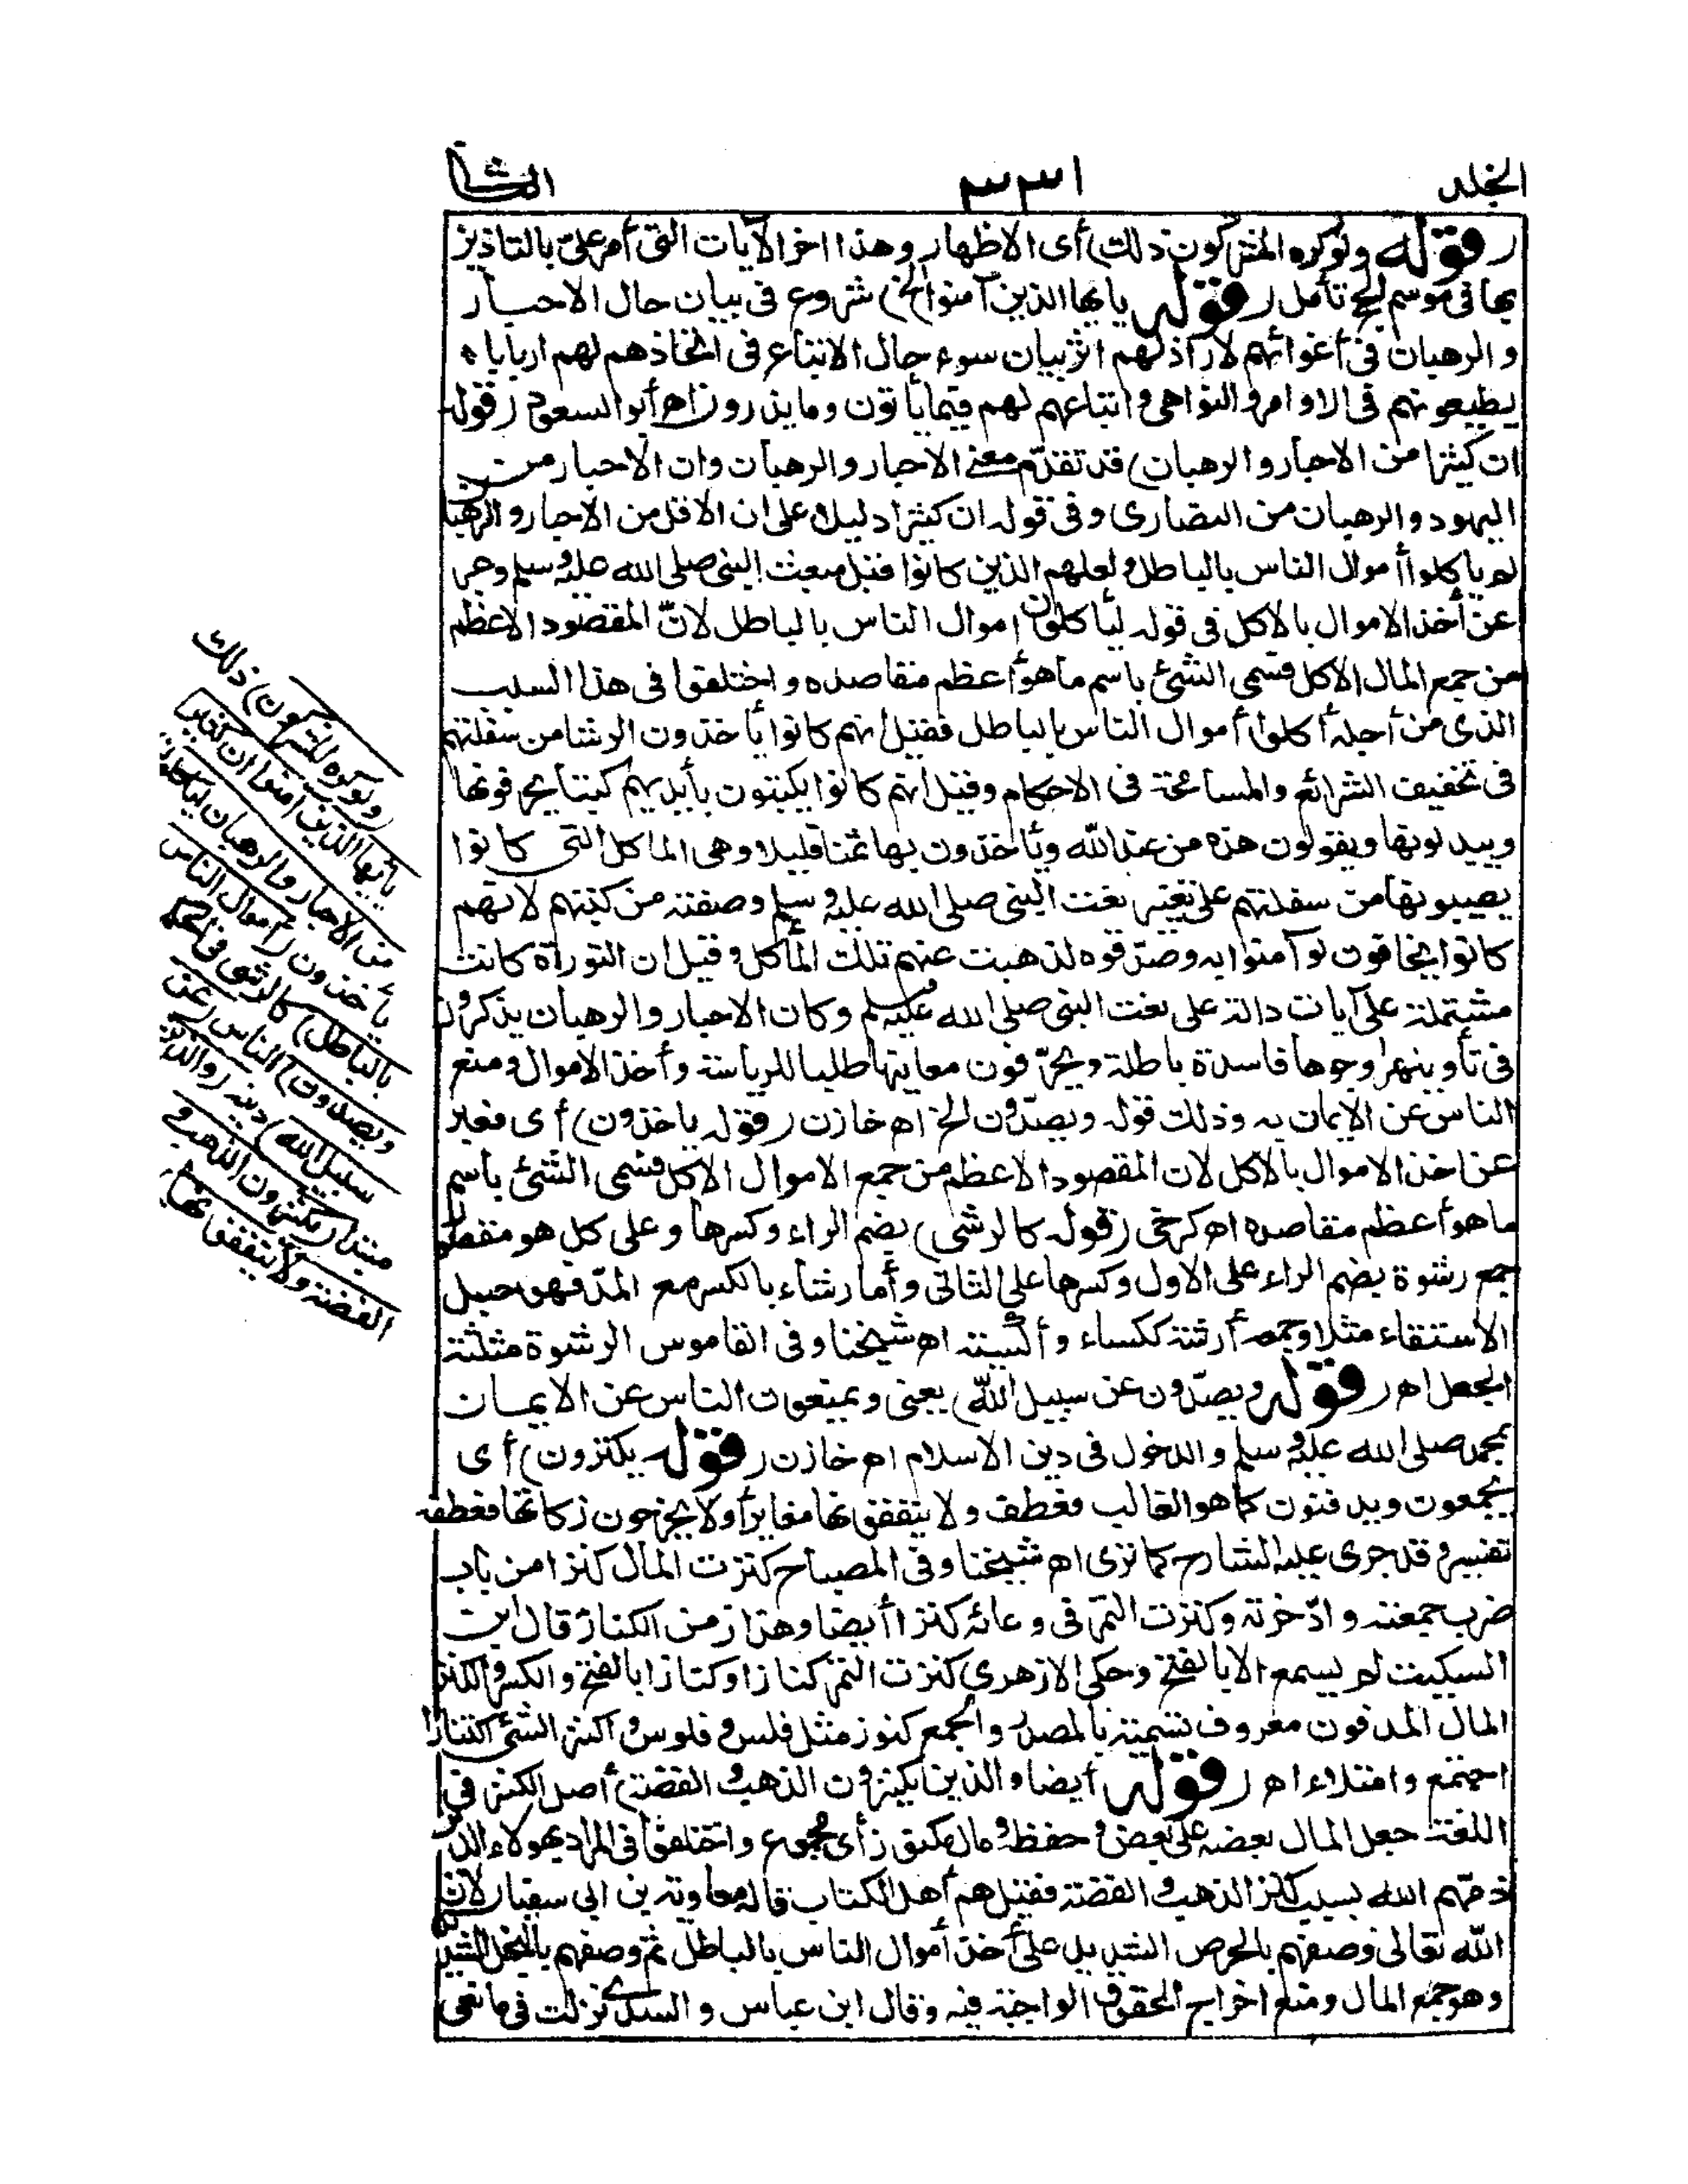 الجلد ٣٣١ الثانى
(قوله ولوكره المشركون ذلك) أى الاظهار وهذا اخر الآيات التى أمر علىّ بالتاذين
بها فى موسم الحج تأمل (قوله يايها الذين آمنوا الخ) شروع فى بيان حال الاحبار
والرهبان فى اغوائهم لاراذلهم اثر بيان سوء حال الاتباع فى اتخاذهم لهم اربابا
يطيعونهم فى الاوامر والنواهى واتباعهم لهم فيما يأتون وما يذرون اهـ أبو السعود (قوله
ان كثيرا من الاحبار والرهبان) قد تقدّم معنى الاحبار والرهبان وان الاحبار من
اليهود والرهبان من النصارى وفى قوله ان كثيرا دليل على ان الاقل من الاحبار والرهبا
لم ياكلوا أموال الناس بالباطل ولعلهم الذين كانوا قبل مبعث النبى صلى الله عليه وسلم وعبر
عن أخذ الاموال بالاكل فى قوله ليأكلون اموال الناس بالباطل لانّ المقصود الاعظم
من جمع المال الاكل فسمى الشئ باسم ما هو أعظم مقاصده واختلفوا فى هذا السبب
الذى من أجله أكلوا أموال الناس بالباطل فقيل انهم كانوا يأخذون الرشا من سفلتهم
فى تخفيف الشرائع والمسامحة فى الاحكام وقيل انهم كانوا يكتبون بأيديهم كتبا يحرفونها
ويبدلونها ويقولون هذه من عند الله ويأخذون بها ثمنا قليلا وهى المآكل التى كانوا
يصيبونها من سفلتهم على تغيير نعت النبى صلى الله عليه وسلم وصفته من كتبهم لانهم
كانوا يخافون لو آمنوا به وصدّقوه لذهبت عنهم تلك المآكل وقيل ان التوراة كانت
مشتملة على آيات دالة على نعت النبى صلى الله عليه وسلم وكان الاحبار والرهبان يذكرون
فى تأويلها وجوها فاسدة باطلة ويحرّفون معانيها طلبا للرياسة وأخذ الاموال ومنع
الناس عن الايمان به وذلك قوله ويصدّون الخ اهـ خازن (قوله ياخذون) أى فعبر
عن اخذ الاموال بالاكل لان المقصود الاعظم من جمع الاموال الاكل فسمى الشئ باسم
ما هو أعظم مقاصده اهـ كرخى (قوله كالرشى) بضم الراء وكسرها وعلى كل هو مقصور
جمع رشوة بضم الراء على الاول وكسرها على الثانى وأما رشاء بالكسر مع المدّ فهو حبل
الاستقاء مثلا وجمعه أرشية ككساء وأكسية اهـ شيخنا وفى القاموس الرشوة مثلثة
الجعل اهـ (قوله ويصدّون عن سبيل الله) يعنى ويمنعون الناس عن الايمان
بمحمد صلى الله عليه وسلم والدخول فى دين الاسلام اهـ خازن (قوله يكنزون) أى
يجمعون ويدفنون كما هو الغالب فعطف ولا ينفقونها مغاير أولا يخرجون زكاتها فعطفه
تفسير وقد جرى عليه الشارح كما ترى اهـ شيخنا وفى المصباح كنزت المال كنزا من باب
ضرب جمعته وادّخرته وكنزت التمر فى وعائه كنزا أيضا وهذا زمن الكناز قال ابن
السكيت لم يسمع الا بالفتح وحكى الازهرى كنزت التمر كنازا وكنازا بالفتح والكسر والكنز
المال المدفون معروف تسمية بالمصدر والجمع كنوز مثل فلس وفلوس واكتنز الشئ اكتنازا
اجتمع وامتلاء اهـ (قوله أيضا والذين يكنزون الذهب والفضة) أصل الكنز فى
اللغة جعل المال بعضه على بعض وحفظه ومال مكنوز أى مجموع واختلفوا فى المراد بهولاء الذين
ذمّهم الله بسبب كنز الذهب والفضة فقيل هم أهل الكتاب قاله معاوية بن ابى سفيان لان
الله تعالى وصفهم بالحرص الشديد على أخذ أموال الناس بالباطل ثم وصفهم بالبخل الشديد
وهو جمع المال ومنع اخراج الحقوق الواجبة فيه وقال ابن عباس والسدى نزلت فى مانعى
ولوكره المشركون) ذلك
يأيها الذين امنوا ان كثير
من الاحبار والرهبان ليأكلون
يأخذون (أموال الناس
بالباطل) كالرشى فى الحكم
ويصدون) الناس (عن
سبيل الله) دينه (والذين
مبتدا (يكنزون الذهب و
الفضة ولا ينفقونها